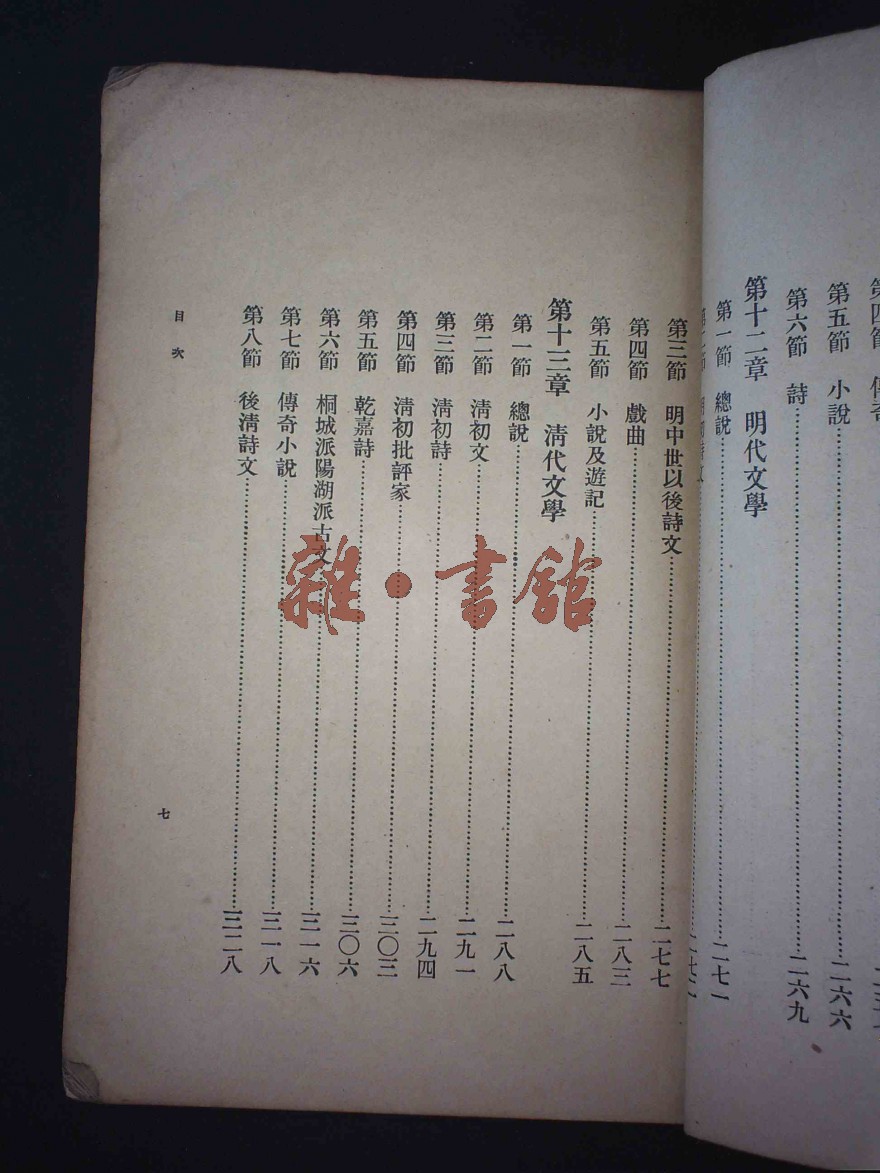 第五節　小說……二六六
第六節　詩……二六九
第十二章　明代文學
第一節　總說……二七一
第三節　明中世以後詩文……二七七
第四節　戲曲……二八三
第五節　小說及遊記……二八五
第十三章　淸代文學
第一節　總說……二八八
第二節　淸初文……二九一
第三節　淸初詩……二九四
第四節　淸初批評家……三〇三
第五節　乾嘉詩……三〇六
第六節　桐城派陽湖派古文……三一六
第七節　傳奇小說……三一八
第八節　後淸詩文……三二八
目次
七
雜·書館